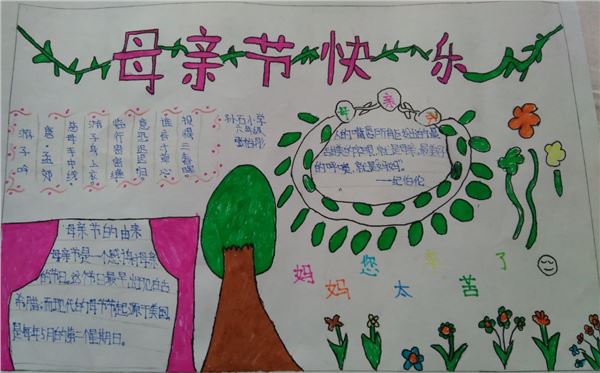 母亲节快乐
游子吟
唐·孟郊
慈母手中线
游子身上衣
临行密密缝
意恐迟迟归
谁言寸草心
报得三春晖
孙石小学
六年级
母亲节
人的嘴唇所能发出的最
甜美的字眼，就是母亲，最美好
的呼唤，就是妈妈。
——纪伯伦
母亲节的由来
母亲节是一个感谢母亲
的节日。这个节日最早出现在古
希腊；而现代的母亲节起源于美国，
是每年5月的第二个星期日。
妈妈您太辛苦了